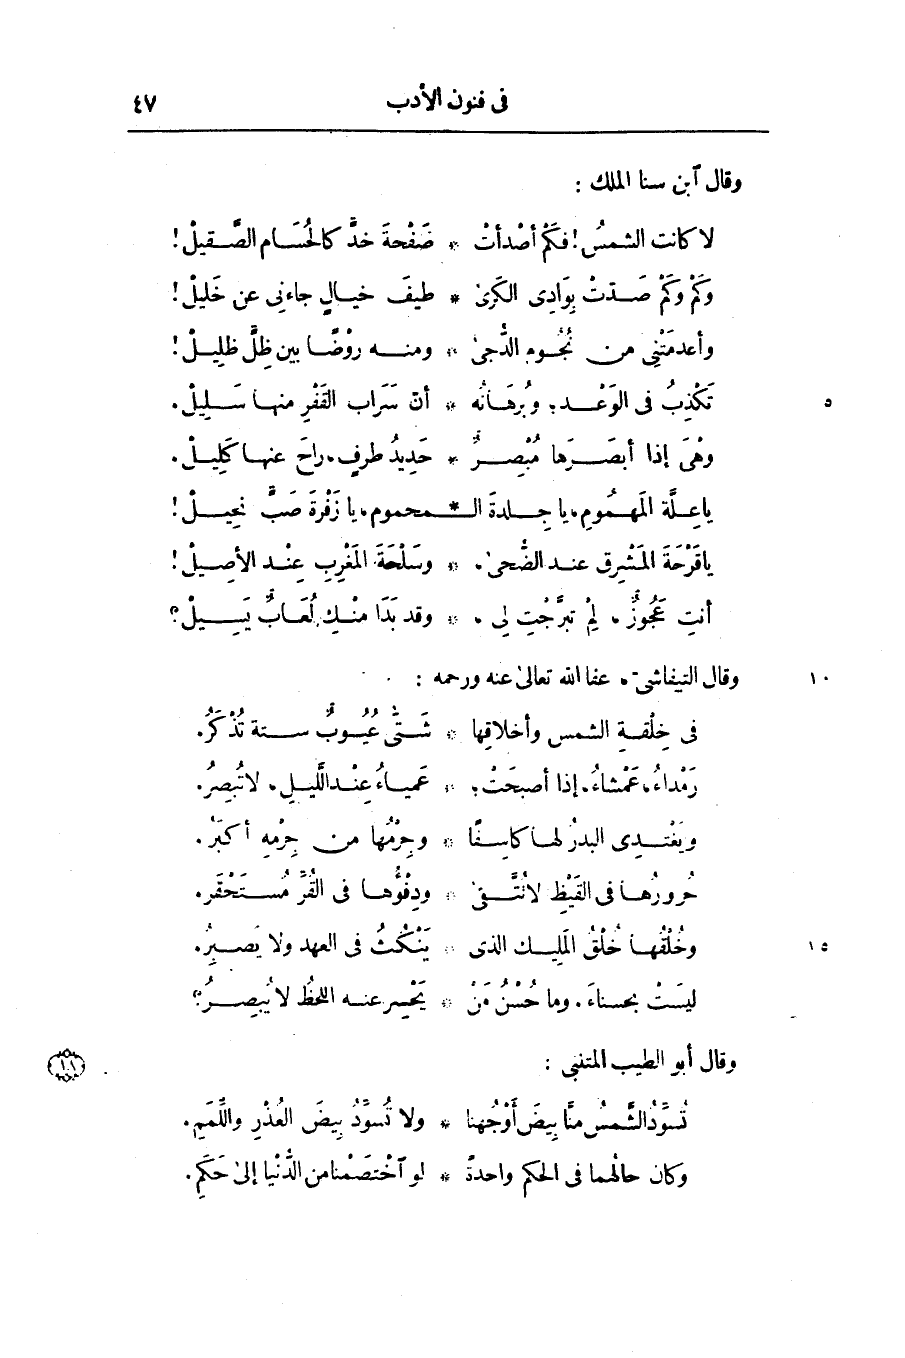 ٤٧ فى فنون الأدب
وقال ٱبن سنا الملك :
لا كانت الشمسُ! فكَمْ أصْدأتْ * صَفْحةَ خدٍّ كالحُسَام الصَّقيلْ!
وكَمْ وكَمْ صَدّتْ بِوَادِى الكَرىٰ * طيفَ خيالٍ جاءنِى عن خَليلْ!
وأعدمَتْنِى من نُجُومِ الدُّجىٰ * ومنه روْضًا بين ظِلٍّ ظلِيلْ!
تَكْذِبُ فى الوَعْدِ؛ وبُرهَانُه * أنّ سَرَاب القَفْرِ منها سَلِيلْ.
٥
وهْىَ إذا أبصَرَها مُبْصِرٌ * حَدِيدُ طرفٍ، راحَ عنها كَلِيلْ.
ياعِلَّة المَهْمُومِ، يا جِلدةَ الـ * ـمحموم، يا زَفْرةَ صَبٍّ نَحِيلْ!
ياقَرْحَةَ المَشْرِق عند الضُّحىٰ، * وسَلْحَةَ المَغْرِبِ عِنْد الأصِيلْ!
أنتِ عَجُوزٌ، لِمْ تبَرَّجْتِ لِى ، * وقد بَدَا منْكِ لُعَابٌ يَسِيلْ؟
وقال التيفاشىّ، عفا الله تعالىٰ عنه ورحمه :
١٠
فى خِلْقةِ الشمس وأخلاقِها * شَتّٰى عُيُوبٌ ستة تُذْكَرُ.
رَمْداءُ، عَمْشاءُ، إذا أصبحَتْ؛ * عَمياءُ عِنْد اللَّيلِ، لا تُبصِرُ.
ويَغْتدِى البدرُ لها كاسِفًا * وجِرْمُها من جِرْمِه أكبَرُ.
حَُرورُها فى القَيْظِ لا تُتَّقىٰ * ودِفْؤُها فى القُرِّ مُستَحْقَر.
وخُلْقُها خُلْقُ المَلِيك الذى * يَنْكُثُ فى العهد ولا يَصبِرُ.
١٥
ليسَتْ بحسناءَ. وما حُسْنُ مَنْ * يَحْسِر عنه اللحظُ لا يُبصِرُ؟
وقال أبو الطيب المتنبى :
١١
تُسَوِّدُ الشَّمسُ منَّا بِيضَ أوْجُهنا * ولا تُسَوِّدُ بِيضَ العُذْرِ واللِّمَمِ.
وكان حالُهما فى الحكم واحدةً * لو ٱخْتصَمْنا من الدُّنْيا إلىٰ حَكَمِ.